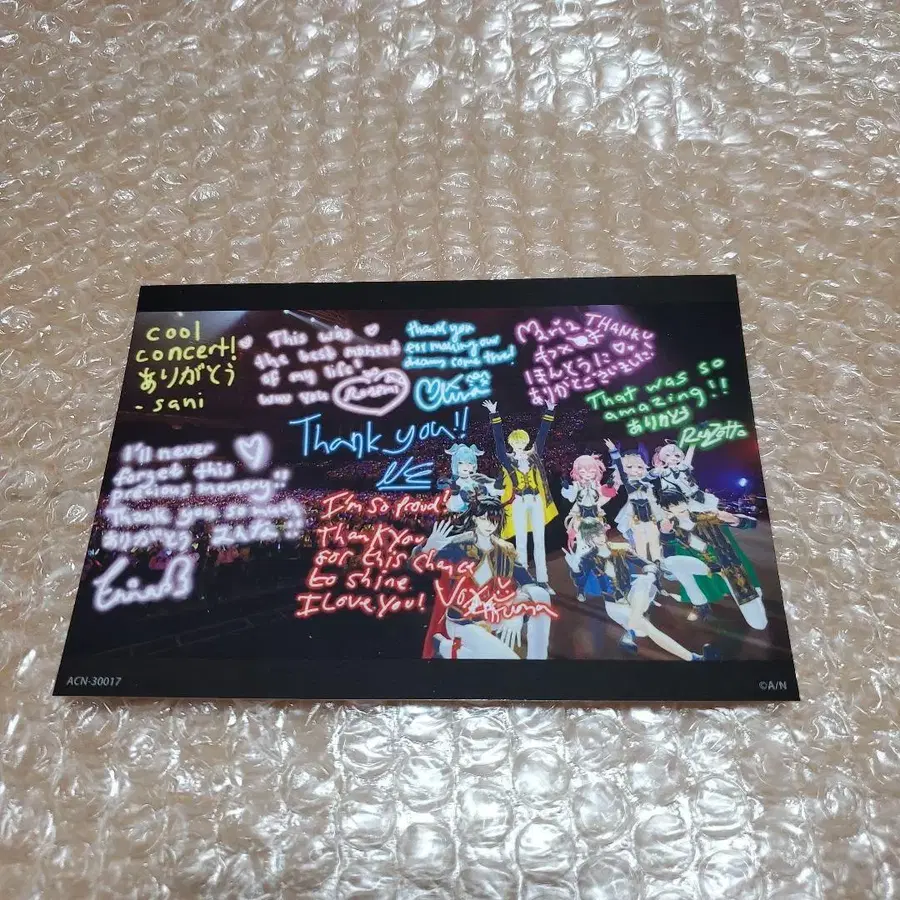 cool
concert!
ありがとう
- sani
This was
the best moment
of my life!
Rosemi
Thank you
for making our
dreams come true!
Maria
THANK U
ほんとうに
ありがとございました!
That was so
amazing!!
ありがとう
Ryzotto
Thank you!!
I'll never
forget this
precious memory!!
Thank you so much
ありがとう、みんな!!
I'm so proud!
Thank you
for this chance
to shine
I love you! Vox
Akuma
ACN-30017
©A/N